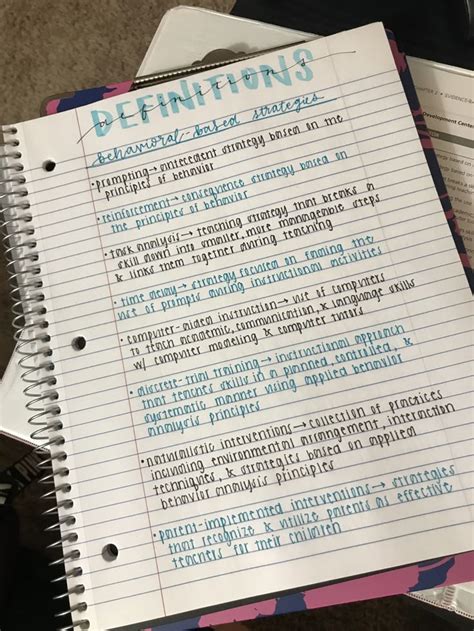 DEFINITIONS
definitions
behavioral-based strategies
• prompting → antecedent strategy based on the
principles of behavior
• reinforcement → consequence strategy based on
the principles of behavior
• task analysis → teaching strategy that breaks a
skill down into smaller, more manageable steps
& links them together during teaching
• time delay → strategy focused on fading the
use of prompts during instructional activities
• computer-aided instruction → use of computers
to teach academic, communication, & language skills
w/ computer modeling & computer tutors
• discrete-trial training → instructional approach
that teaches skills in a planned, controlled, &
systematic manner using applied behavior
analysis principles
• naturalistic interventions → collection of practices
including environmental arrangement, interaction
techniques, & strategies based on applied
behavior analysis principles
• parent-implemented interventions → strategies
that recognize & utilize parents as effective
teachers for their children
CHAPTER 2 •
Development Center